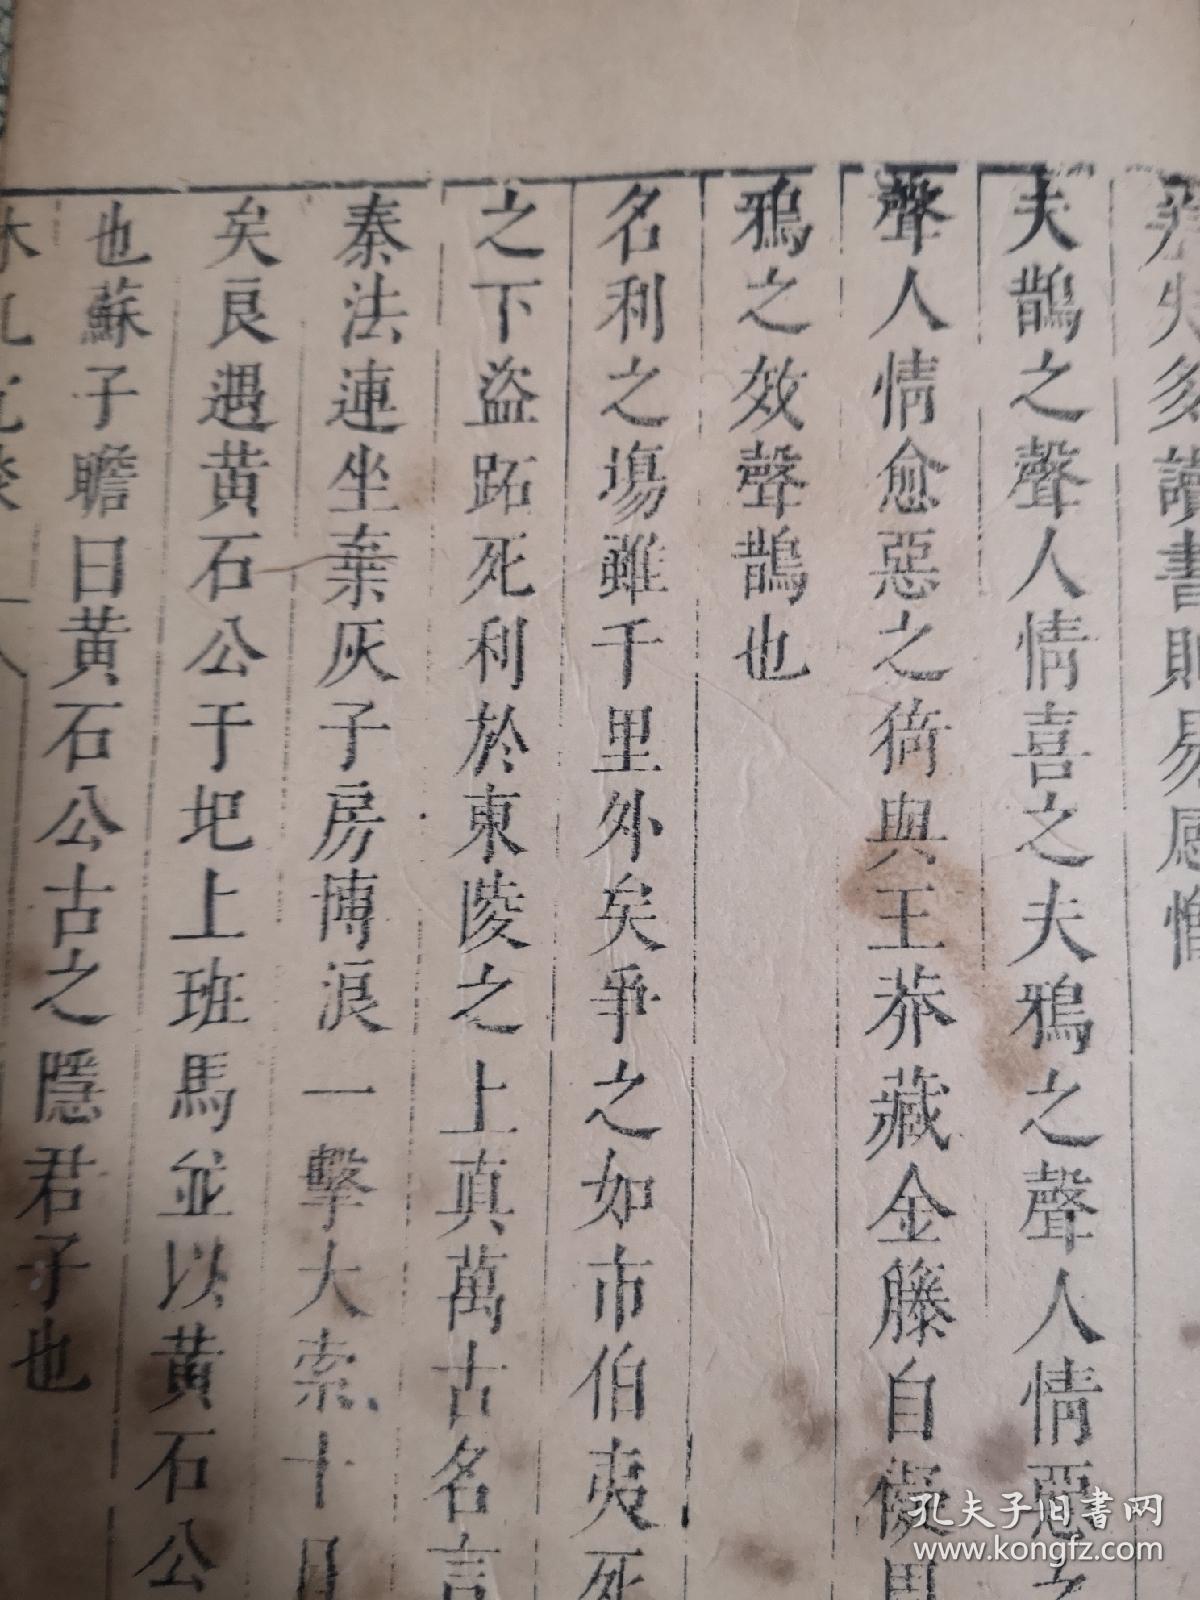 失多讀書則易感憎
夫鵲之聲人情喜之夫鴉之聲人情惡之
聲人情愈惡之猗與王莽藏金籐自儗周
鴉之效聲鵲也
名利之塲雖千里外矣爭之如市伯夷死
之下盜跖死利於東陵之上真萬古名言
秦法連坐棄灰子房博浪一擊大索十日
矣良遇黃石公于圯上班馬並以黃石公
也蘇子瞻曰黃石公古之隱君子也
孔夫子旧书网
www.kongfz.com